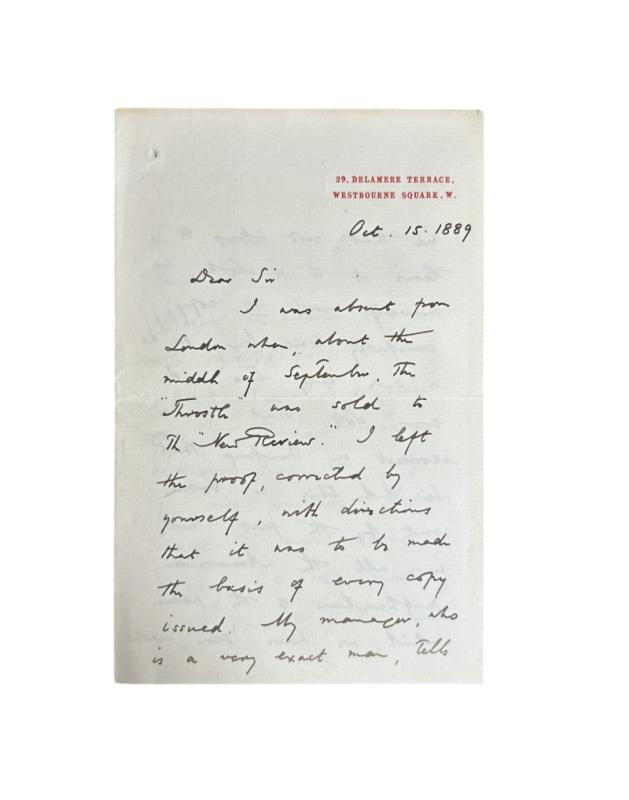 29, DELAMERE TERRACE,
WESTBOURNE SQUARE, W.
Oct. 15. 1889
Dear Sir
I was absent from
London when, about the
middle of September, The
"Throstle" was sold to
The "New Review." I left
the proof, corrected by
yourself, with directions
that it was to be made
the basis of every copy
issued. My manager, who
is a very exact man, tells